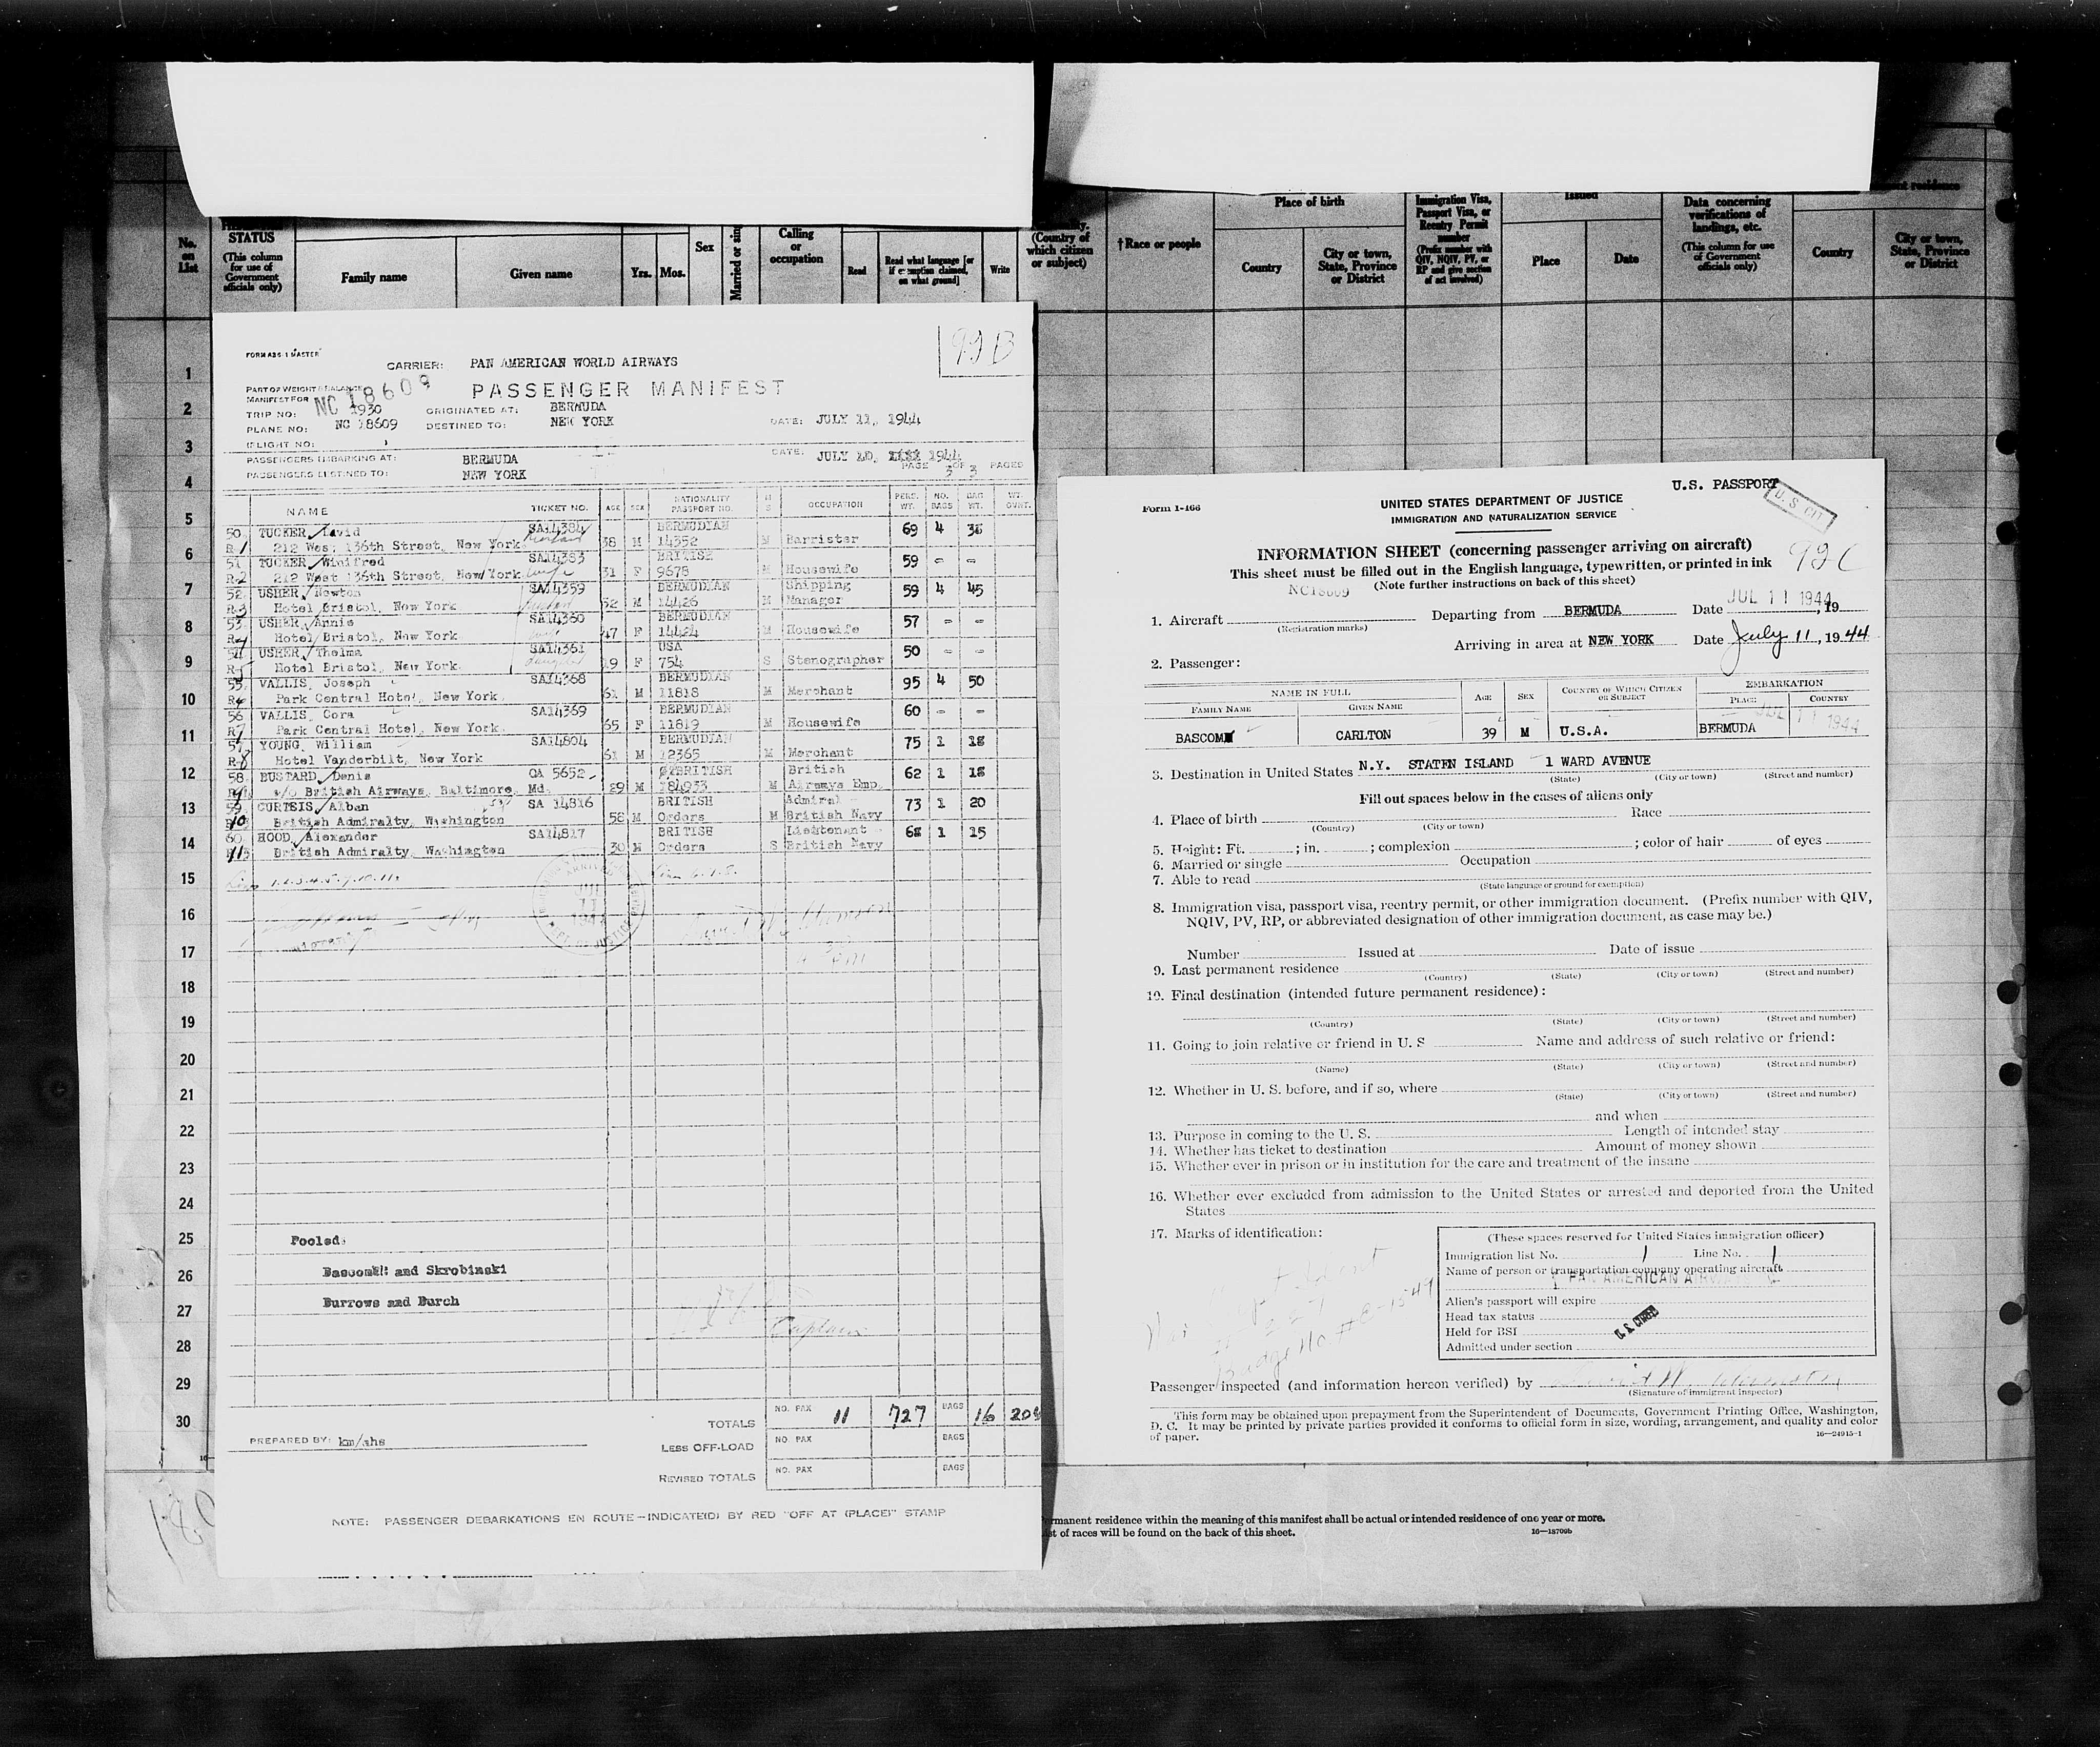 No. on List
STATUS
(This column for use of Government officials only)
Family name
Given name
Yrs.
Mos.
Sex
Married or sin
Calling or occupation
Read
Read what language [or if exemption claimed, on what ground]
Write
(Country of which citizen or subject)
†Race or people
Place of birth
Country
City or town, State, Province or District
Immigration Visa, Passport Visa, or Reentry Permit number
(Prefix number with QIV, NQIV, PV, or RP and give section of act involved)
Issued
Place
Date
Data concerning verifications of landings, etc.
(This column for use of Government officials only)
residence
Country
City or town, State, Province or District
1
2
3
4
5
6
7
8
9
10
11
12
13
14
15
16
17
18
19
20
21
22
23
24
25
26
27
28
29
30
99B
CARRIER: PAN AMERICAN WORLD AIRWAYS
PASSENGER MANIFEST
PART OF WEIGHT & BALANCE
MANIFEST FOR NC 18609
TRIP NO: 1930 ORIGINATED AT: BERMUDA
PLANE NO: NC 18609 DESTINED TO: NEW YORK DATE: JULY 11, 1944
FLIGHT NO:
PASSENGERS EMBARKING AT: BERMUDA DATE: JULY 10, 1944
PASSENGERS DESTINED TO: NEW YORK PAGE 3 OF 3 PAGES
NAME TICKET NO. AGE SEX NATIONALITY PASSPORT NO. M S OCCUPATION PERS. WT. NO. BAGS BAG WT. WT. OVNT.
50. TUCKER, David SA14384 BERMUDIAN 69 4 36
212 West 136th Street, New York 38 M 14352 M Barrister
51. TUCKER, Winifred SA14383 BRITISH 59 - -
212 West 136th Street, New York wife 31 F 9678 M Housewife
52. USHER, Newton SA14359 BERMUDIAN Shipping 59 4 45
Hotel Bristol, New York 52 M 14426 M Manager
53. USHER, Annie SA14360 BERMUDIAN 57 - -
Hotel Bristol, New York 47 F 14424 M Housewife
54. USHER, Thelma SA14361 USA 50 - -
Hotel Bristol, New York daughter 19 F 754 S Stenographer
55. VALLIS, Joseph SA14368 BERMUDIAN 95 4 50
Park Central Hotel, New York 61 M 11818 M Merchant
56. VALLIS, Cora SA14369 BERMUDIAN 60 - -
Park Central Hotel, New York 65 F 11819 M Housewife
57. YOUNG, William SA14804 BERMUDIAN 75 1 18
Hotel Vanderbilt, New York 61 M 12365 M Merchant
58. BUSTARD, Denis QA 5652 BRITISH British 62 1 18
c/o British Airways, Baltimore, Md. 29 M 184933 M Airways Emp
59. CURTEIS, Alban SA 14816 BRITISH Admiral 73 1 20
British Admiralty, Washington 58 M Orders M British Navy
60. HOOD, Alexander SA14817 BRITISH Lieutenant 68 1 15
British Admiralty, Washington 30 M Orders S British Navy
Pooled:
Bascom and Skrobinski
Burrows and Burch
Captain
TOTALS NO. PAX 11 727 BAGS 16
LESS OFF-LOAD NO. PAX BAGS
REVISED TOTALS NO. PAX BAGS
PREPARED BY: km/ahs
NOTE: PASSENGER DEBARKATIONS EN ROUTE—INDICATE(D) BY RED "OFF AT (PLACE)" STAMP
U.S. PASSPORT
U.S. CIT.
Form I-466
UNITED STATES DEPARTMENT OF JUSTICE
IMMIGRATION AND NATURALIZATION SERVICE
INFORMATION SHEET (concerning passenger arriving on aircraft)
This sheet must be filled out in the English language, typewritten, or printed in ink
(Note further instructions on back of this sheet)
99C
NC18609
JUL 11 1944
1. Aircraft Departing from BERMUDA Date , 19
(Registration marks)
Arriving in area at NEW YORK Date July 11, 1944
2. Passenger:
NAME IN FULL AGE SEX COUNTRY OF WHICH CITIZEN OR SUBJECT EMBARKATION
FAMILY NAME GIVEN NAME PLACE COUNTRY
JUL 11 1944
BASCOM CARLTON 39 M U.S.A. BERMUDA
3. Destination in United States N.Y. STATEN ISLAND 1 WARD AVENUE
(State) (City or town) (Street and number)
Fill out spaces below in the cases of aliens only
4. Place of birth Race
(Country) (City or town)
5. Height: Ft. ; in. ; complexion ; color of hair of eyes
6. Married or single Occupation
7. Able to read
(State language or ground for exemption)
8. Immigration visa, passport visa, reentry permit, or other immigration document. (Prefix number with QIV,
NQIV, PV, RP, or abbreviated designation of other immigration document, as case may be.)
Number Issued at Date of issue
9. Last permanent residence
(Country) (State) (City or town) (Street and number)
10. Final destination (intended future permanent residence):
(Country) (State) (City or town) (Street and number)
11. Going to join relative or friend in U. S Name and address of such relative or friend:
(Name) (State) (City or town) (Street and number)
12. Whether in U. S. before, and if so, where
(State) (City or town) (Street and number)
and when
13. Purpose in coming to the U. S. Length of intended stay
14. Whether has ticket to destination Amount of money shown
15. Whether ever in prison or in institution for the care and treatment of the insane
16. Whether ever excluded from admission to the United States or arrested and deported from the United
States
17. Marks of identification:
Badge No #
(These spaces reserved for United States immigration officer)
Immigration list No. 1 Line No. 1
Name of person or transportation company operating aircraft
PAN AMERICAN AIRWAYS
Alien's passport will expire
Head tax status
Held for BSI
Admitted under section
Passenger inspected (and information hereon verified) by
(Signature of immigrant inspector)
This form may be obtained upon prepayment from the Superintendent of Documents, Government Printing Office, Washington,
D. C. It may be printed by private parties provided it conforms to official form in size, wording, arrangement, and quality and color
of paper.
16—24915-1
rmanent residence within the meaning of this manifest shall be actual or intended residence of one year or more.
st of races will be found on the back of this sheet.
16—18709b